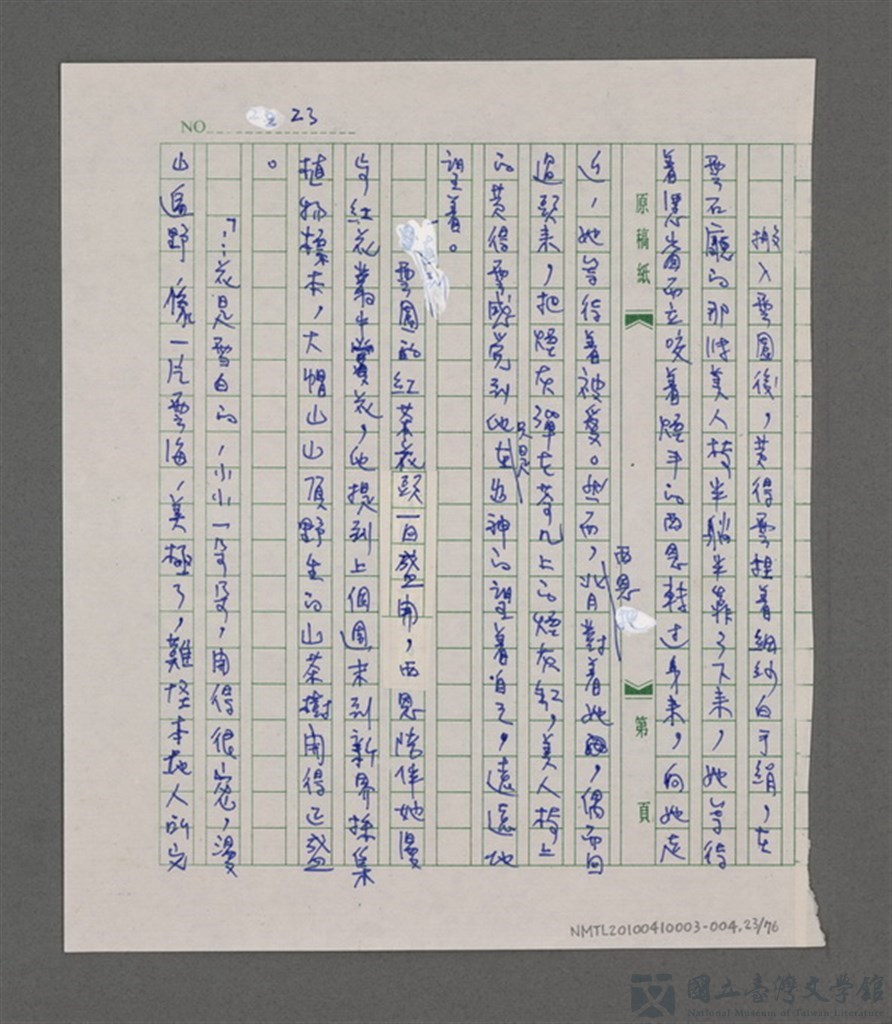 NO 23
搬入雲園後，黃得雲捏着細紗白手絹，在
雲石廳的那張美人椅半躺半靠了下來，她等待
着憑窗而立咬着煙斗的西恩轉過身來，向她走
原稿紙 第 頁
近，她等待着被愛。然而，背對着她，西恩偶而回
過頭來，把煙灰彈在茶几上的煙灰缸，美人椅上
的黃得雲感覺到他只是在出神的望着自己，遠遠地
望着。
雲園的紅茶花頭一日盛開，西恩陪伴她漫
步紅花叢中賞花，他提到上個週末到新界採集
植物標本，大帽山山頂野生的山茶樹開得正盛
。
「…花是雪白的，小小一朵朵，開得很密，漫
山遍野，像一片雲海，美極了，難怪本地人所它
NMTL20100410003-004.23/76
國立臺灣文學館
National Museum of Taiwan Literature